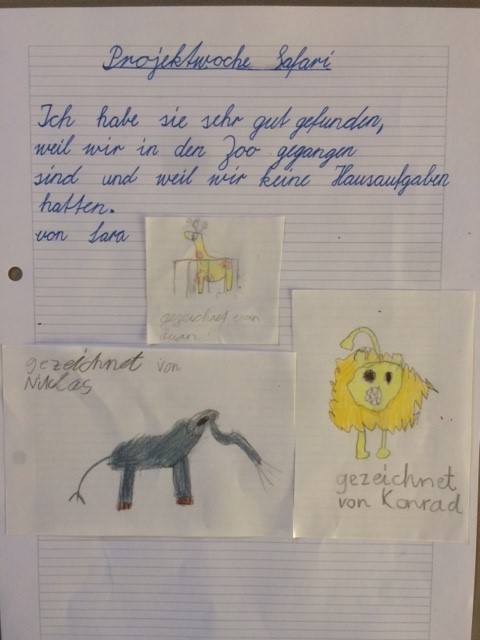 Projektwoche Safari
Ich habe sie sehr gut gefunden,
weil wir in den Zoo gegangen
sind und weil wir keine Hausaufgaben
hatten.
von Lara
gezeichnet von
gezeichnet von
Niklas
gezeichnet
von Konrad